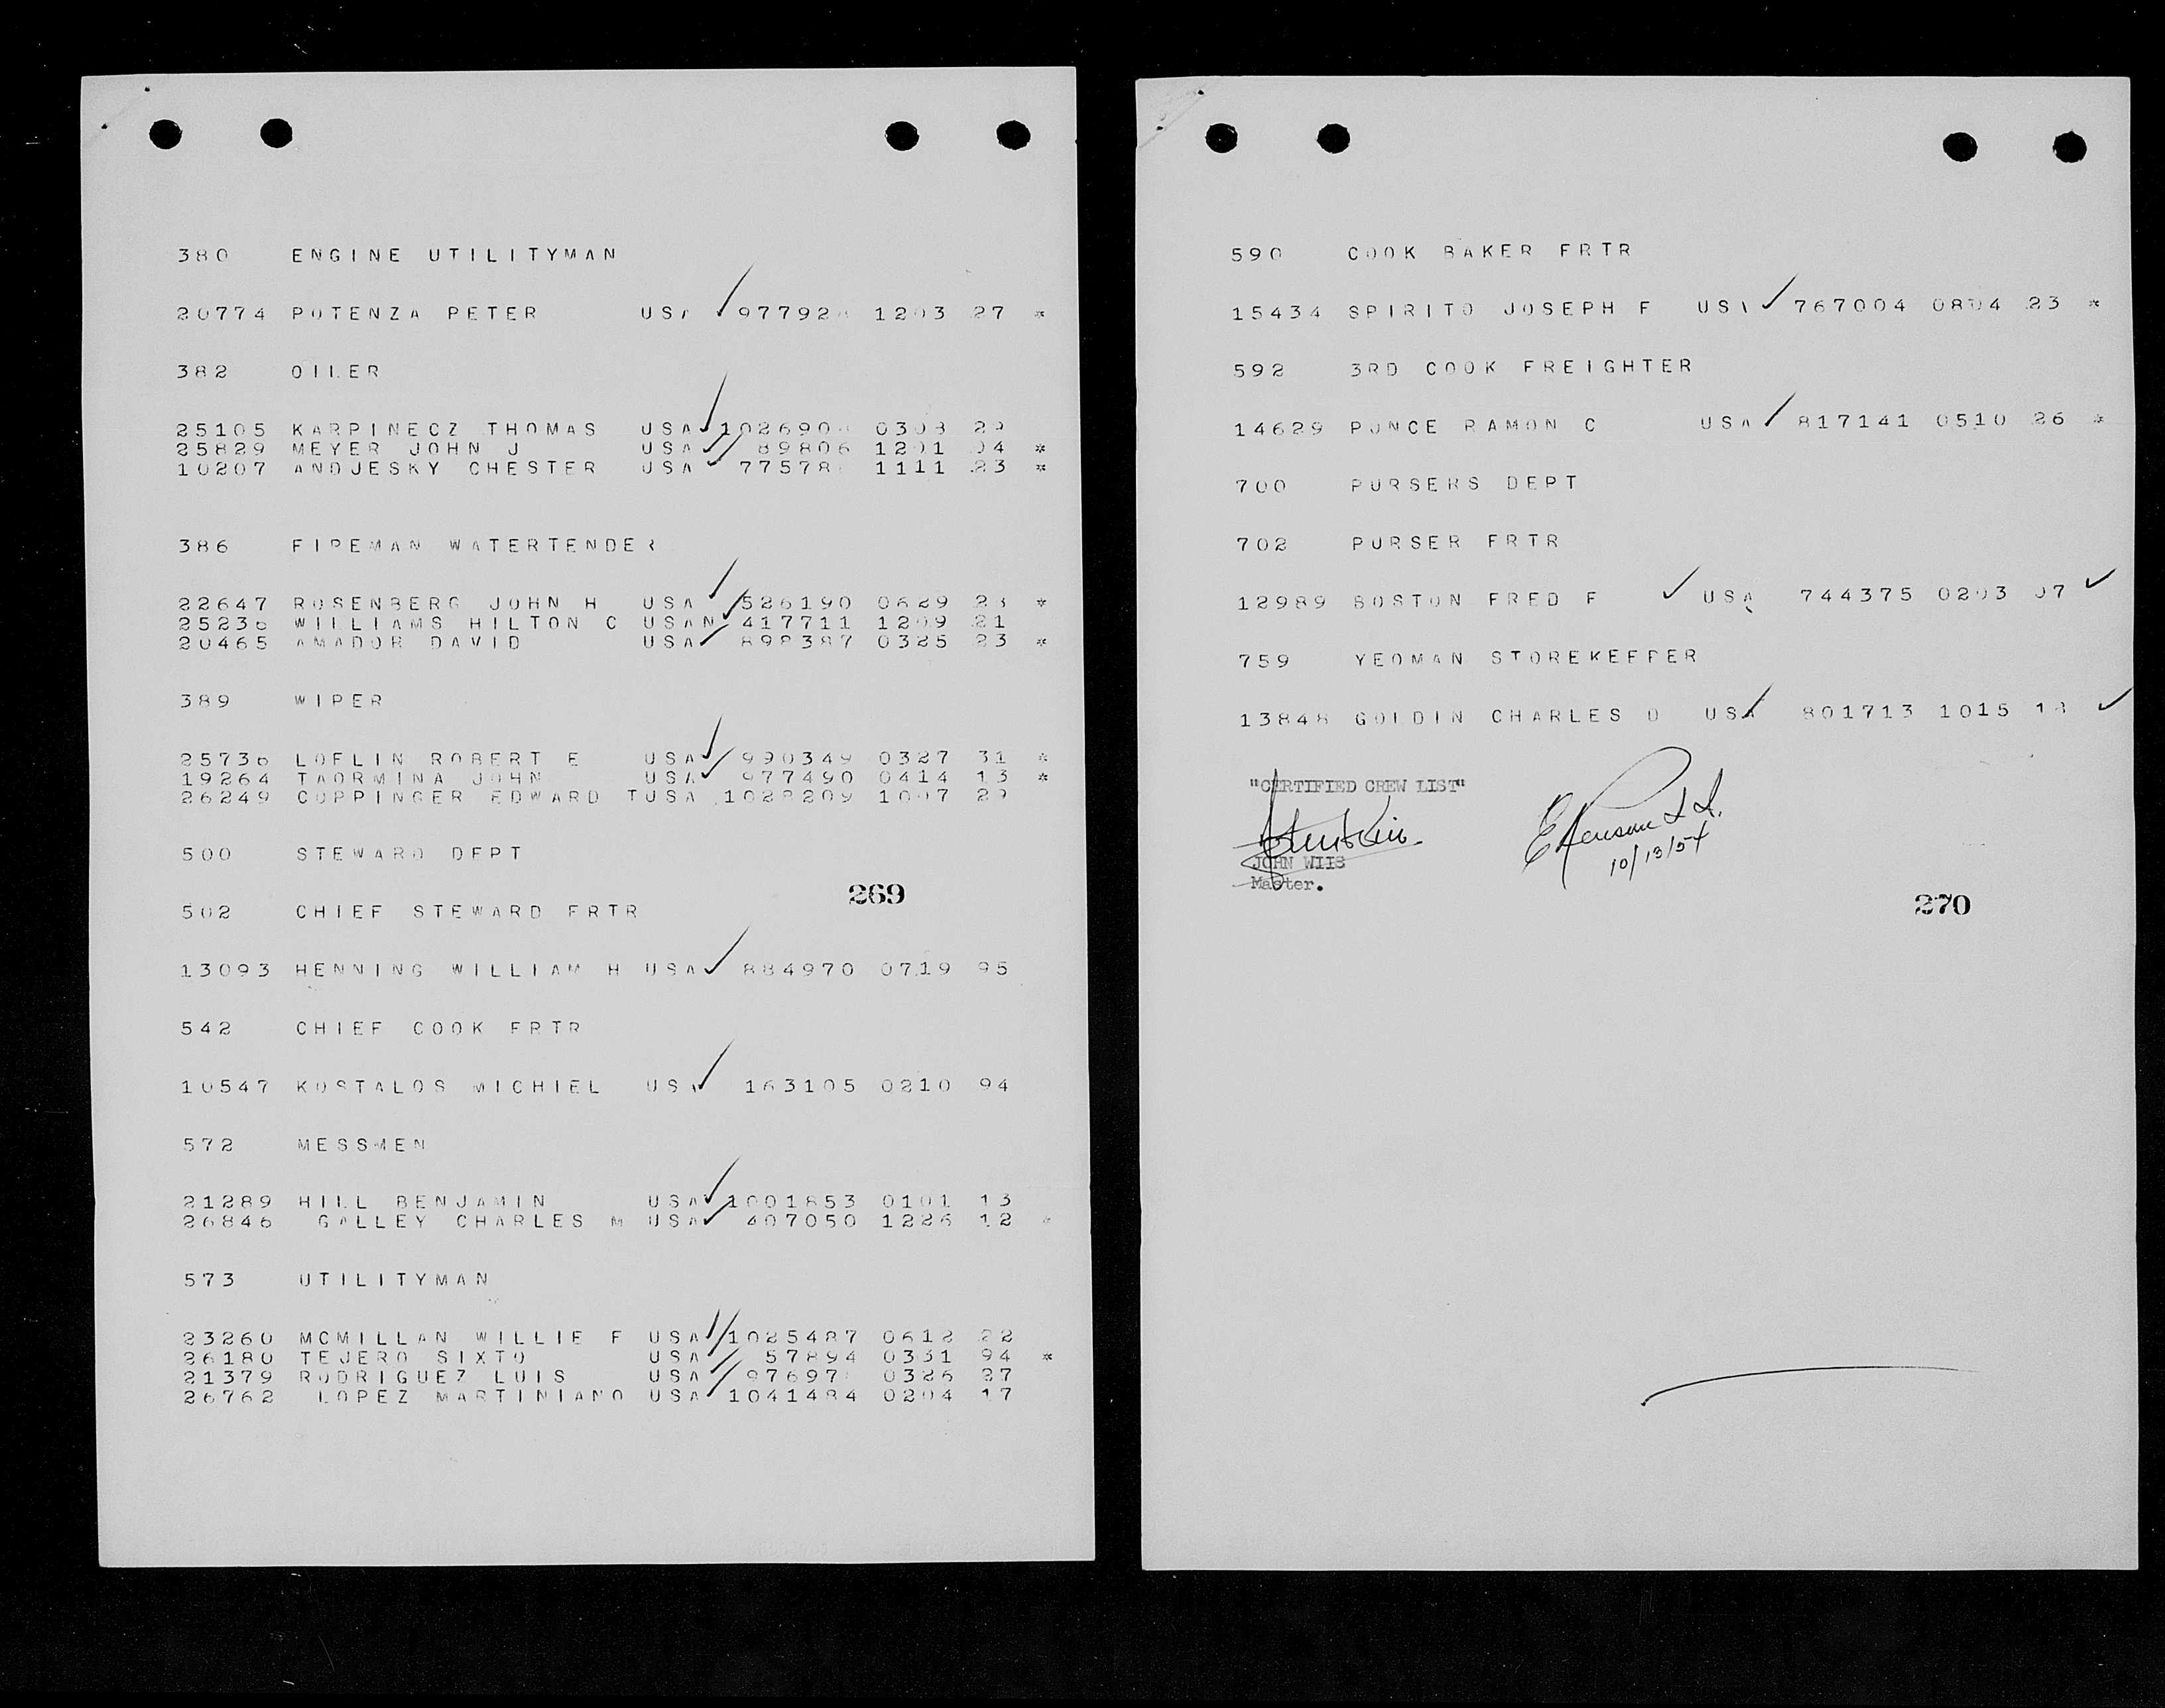 380 ENGINE UTILITYMAN
20774 POTENZA PETER USA 97792 1203 27 *
382 OILER
25105 KARPINECZ THOMAS USA 102690 0303 29
25829 MEYER JOHN J USA 89806 1201 04 *
10207 ANDJESKY CHESTER USA 77578 1111 23 *
386 FIREMAN WATERTENDER
22647 ROSENBERG JOHN H USA 526190 0629 23 *
25236 WILLIAMS HILTON C USAN 417711 1209 21
20465 AMADOR DAVID USA 898387 0325 23 *
389 WIPER
25736 LOFLIN ROBERT E USA 990349 0327 31 *
19264 TAORMINA JOHN USA 977490 0414 13 *
26249 COPPINGER EDWARD TUSA 1028209 1007 29
500 STEWARD DEPT
269
502 CHIEF STEWARD FRTR
13093 HENNING WILLIAM H USA 884970 0719 95
542 CHIEF COOK FRTR
10547 KOSTALOS MICHIEL USA 163105 0210 94
572 MESSMEN
21289 HILL BENJAMIN USA 1001853 0101 13
26846 GALLEY CHARLES M USA 407050 1226 12 *
573 UTILITYMAN
23260 MCMILLAN WILLIE F USA 1025487 0612 22
26180 TEJERO SIXTO USA 57894 0331 94 *
21379 RODRIGUEZ LUIS USA 97697 0326 27
26762 LOPEZ MARTINIANO USA 1041484 0204 17
590 COOK BAKER FRTR
15434 SPIRITO JOSEPH F USA 767004 0804 23 *
592 3RD COOK FREIGHTER
14629 PONCE RAMON C USA 817141 0510 26 *
700 PURSERS DEPT
702 PURSER FRTR
12989 BOSTON FRED F USA 744375 0203 07
759 YEOMAN STOREKEEPER
13848 GOLDIN CHARLES D USA 801713 1015 18
"CERTIFIED CREW LIST"
JOHN WIIS
Master.
10/13/54
270